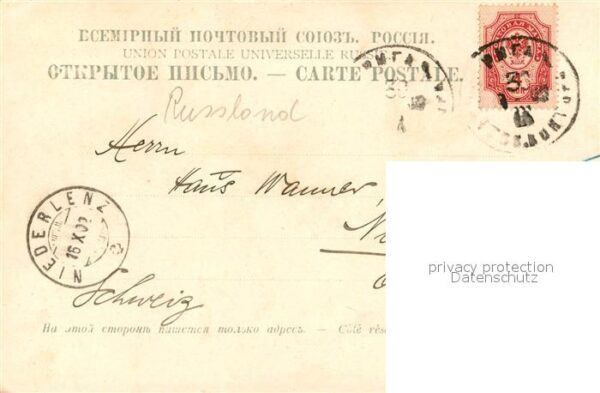 ВСЕМІРНЫЙ ПОЧТОВЫЙ СОЮЗЪ. РОССІЯ.
UNION POSTALE UNIVERSELLE RUS
ОТКРЫТОЕ ПИСЬМО. — CARTE POSTALE.
РИГА
РИГА
Russland
Herrn
Hans Wanner,
NIEDERLENZ
16 X 02
Schweiz
privacy protection
Datenschutz
На этой сторонѣ пишется только адресъ. — Côté rés